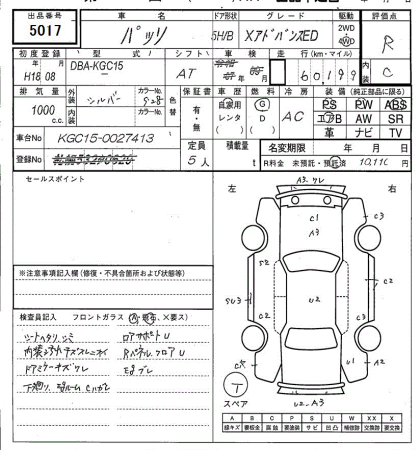 出品番号 5017
車名 パッソ
ドア形状 5H/B
グレード XアドバンスED
駆動 2WD 4WD
評価点 R C
初度登録 H18 08
型式 DBA-KGC15
シフト AT
車検
走行 (km・マイル) 60,199
排気量 1000 c.c.
外装 シルバー
カラーNo. S28
内装
カラーNo.
色替
保証書 有・無
車歴 自家用 レンタ
燃料 G D
冷房 AC
装備 (純正部品に限る)
PS PW ABS
エアB AW SR
革 ナビ TV
車台No KGC15-0027413
定員 5人
積載量 t
名変期限 年 月 日
登録No
R料金 未預託・預託済 10,110
セールスポイント
左 右
A3.ワレ
C1
A3
C3
S2
C2
SU3
U2
C2
C3
U1
A2
U2-A3
※注意事項記入欄 (修復・不具合箇所および状態等)
検査員記入 フロントガラス (A・飛石、×要ス)
シートヘタリ、シミ
ロアサポートU
Rパネル、フロアU
ドアミラーキズワレ
T
スペア
A B C P S U W XX X
線キズ 要板金 腐蝕 要塗装 サビ 凹凸 補修跡 交換跡 要交換